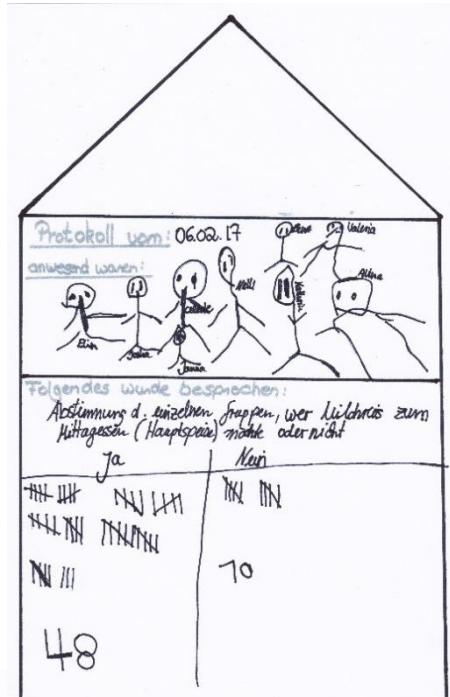 Protokoll vom: 06.02.17
anwesend waren:
Lena Valeria
Nelli Alina
Elin Julia
Janna
Folgendes wurde besprochen:
Abstimmung d. einzelnen Gruppen, wer Milchreis zum
Mittagessen (Hauptspeise) möchte oder nicht
Ja Nein
10
48